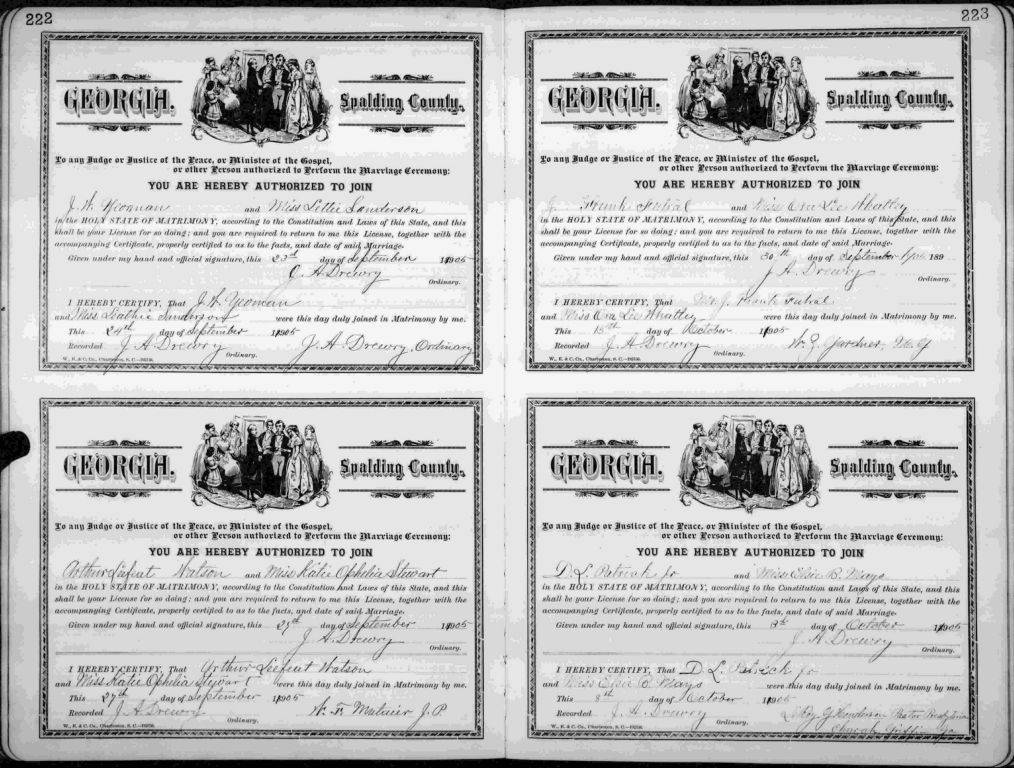 222
GEORGIA, Spalding County.
To any Judge or Justice of the Peace, or Minister of the Gospel,
or other Person authorized to Perform the Marriage Ceremony:
YOU ARE HEREBY AUTHORIZED TO JOIN
J. W. Yeoman and Miss Lettie Sanderson
in the HOLY STATE OF MATRIMONY, according to the Constitution and Laws of this State, and this
shall be your License for so doing; and you are required to return to me this License, together with the
accompanying Certificate, properly certified to as to the facts, and date of said Marriage.
Given under my hand and official signature, this 23rd day of September 1905
J. A. Drewry
Ordinary.
I HEREBY CERTIFY, That J. W. Yeoman
and Miss Sanderson were this day duly joined in Matrimony by me.
This 24th day of September 1905
Recorded J. A. Drewry J. A. Drewry, Ordinary
Ordinary.
W., E. & C. Co., Charleston, S. C.
GEORGIA, Spalding County.
To any Judge or Justice of the Peace, or Minister of the Gospel,
or other Person authorized to Perform the Marriage Ceremony:
YOU ARE HEREBY AUTHORIZED TO JOIN
Arthur Watson and Miss Katie Ophelia Stewart
in the HOLY STATE OF MATRIMONY, according to the Constitution and Laws of this State, and this
shall be your License for so doing; and you are required to return to me this License, together with the
accompanying Certificate, properly certified to as to the facts, and date of said Marriage.
Given under my hand and official signature, this day of September 1905
J. A. Drewry
Ordinary.
I HEREBY CERTIFY, That Arthur Watson
and Miss Katie Ophelia Stewart were this day duly joined in Matrimony by me.
This 27th day of September 1905
Recorded J. A. Drewry W. F. J. P
Ordinary.
W., E. & C. Co., Charleston, S. C.
223
GEORGIA, Spalding County.
To any Judge or Justice of the Peace, or Minister of the Gospel,
or other Person authorized to Perform the Marriage Ceremony:
YOU ARE HEREBY AUTHORIZED TO JOIN
J. Frank Futral and Miss Ora Lee Whatley
in the HOLY STATE OF MATRIMONY, according to the Constitution and Laws of this State, and this
shall be your License for so doing; and you are required to return to me this License, together with the
accompanying Certificate, properly certified to as to the facts, and date of said Marriage.
Given under my hand and official signature, this 30th day of September 1905 189
J. A. Drewry
Ordinary.
I HEREBY CERTIFY, That Mr J. Frank Futral
and Miss Ora Lee Whatley were this day duly joined in Matrimony by me.
This 15th day of October 1905
Recorded J. A. Drewry Gardner,
Ordinary.
W., E. & C. Co., Charleston, S. C.
GEORGIA, Spalding County.
To any Judge or Justice of the Peace, or Minister of the Gospel,
or other Person authorized to Perform the Marriage Ceremony:
YOU ARE HEREBY AUTHORIZED TO JOIN
D. L. Patrick Jr and Miss Elsie B. Mays
in the HOLY STATE OF MATRIMONY, according to the Constitution and Laws of this State, and this
shall be your License for so doing; and you are required to return to me this License, together with the
accompanying Certificate, properly certified to as to the facts, and date of said Marriage.
Given under my hand and official signature, this day of October 1905
J. A. Drewry
Ordinary.
I HEREBY CERTIFY, That D. L. Patrick Jr
and Miss Elsie B Mays were this day duly joined in Matrimony by me.
This 8th day of October 1905
Recorded J. A. Drewry Henderson Pastor Presbyterian
Ordinary. Church Griffin Ga
W., E. & C. Co., Charleston, S. C.